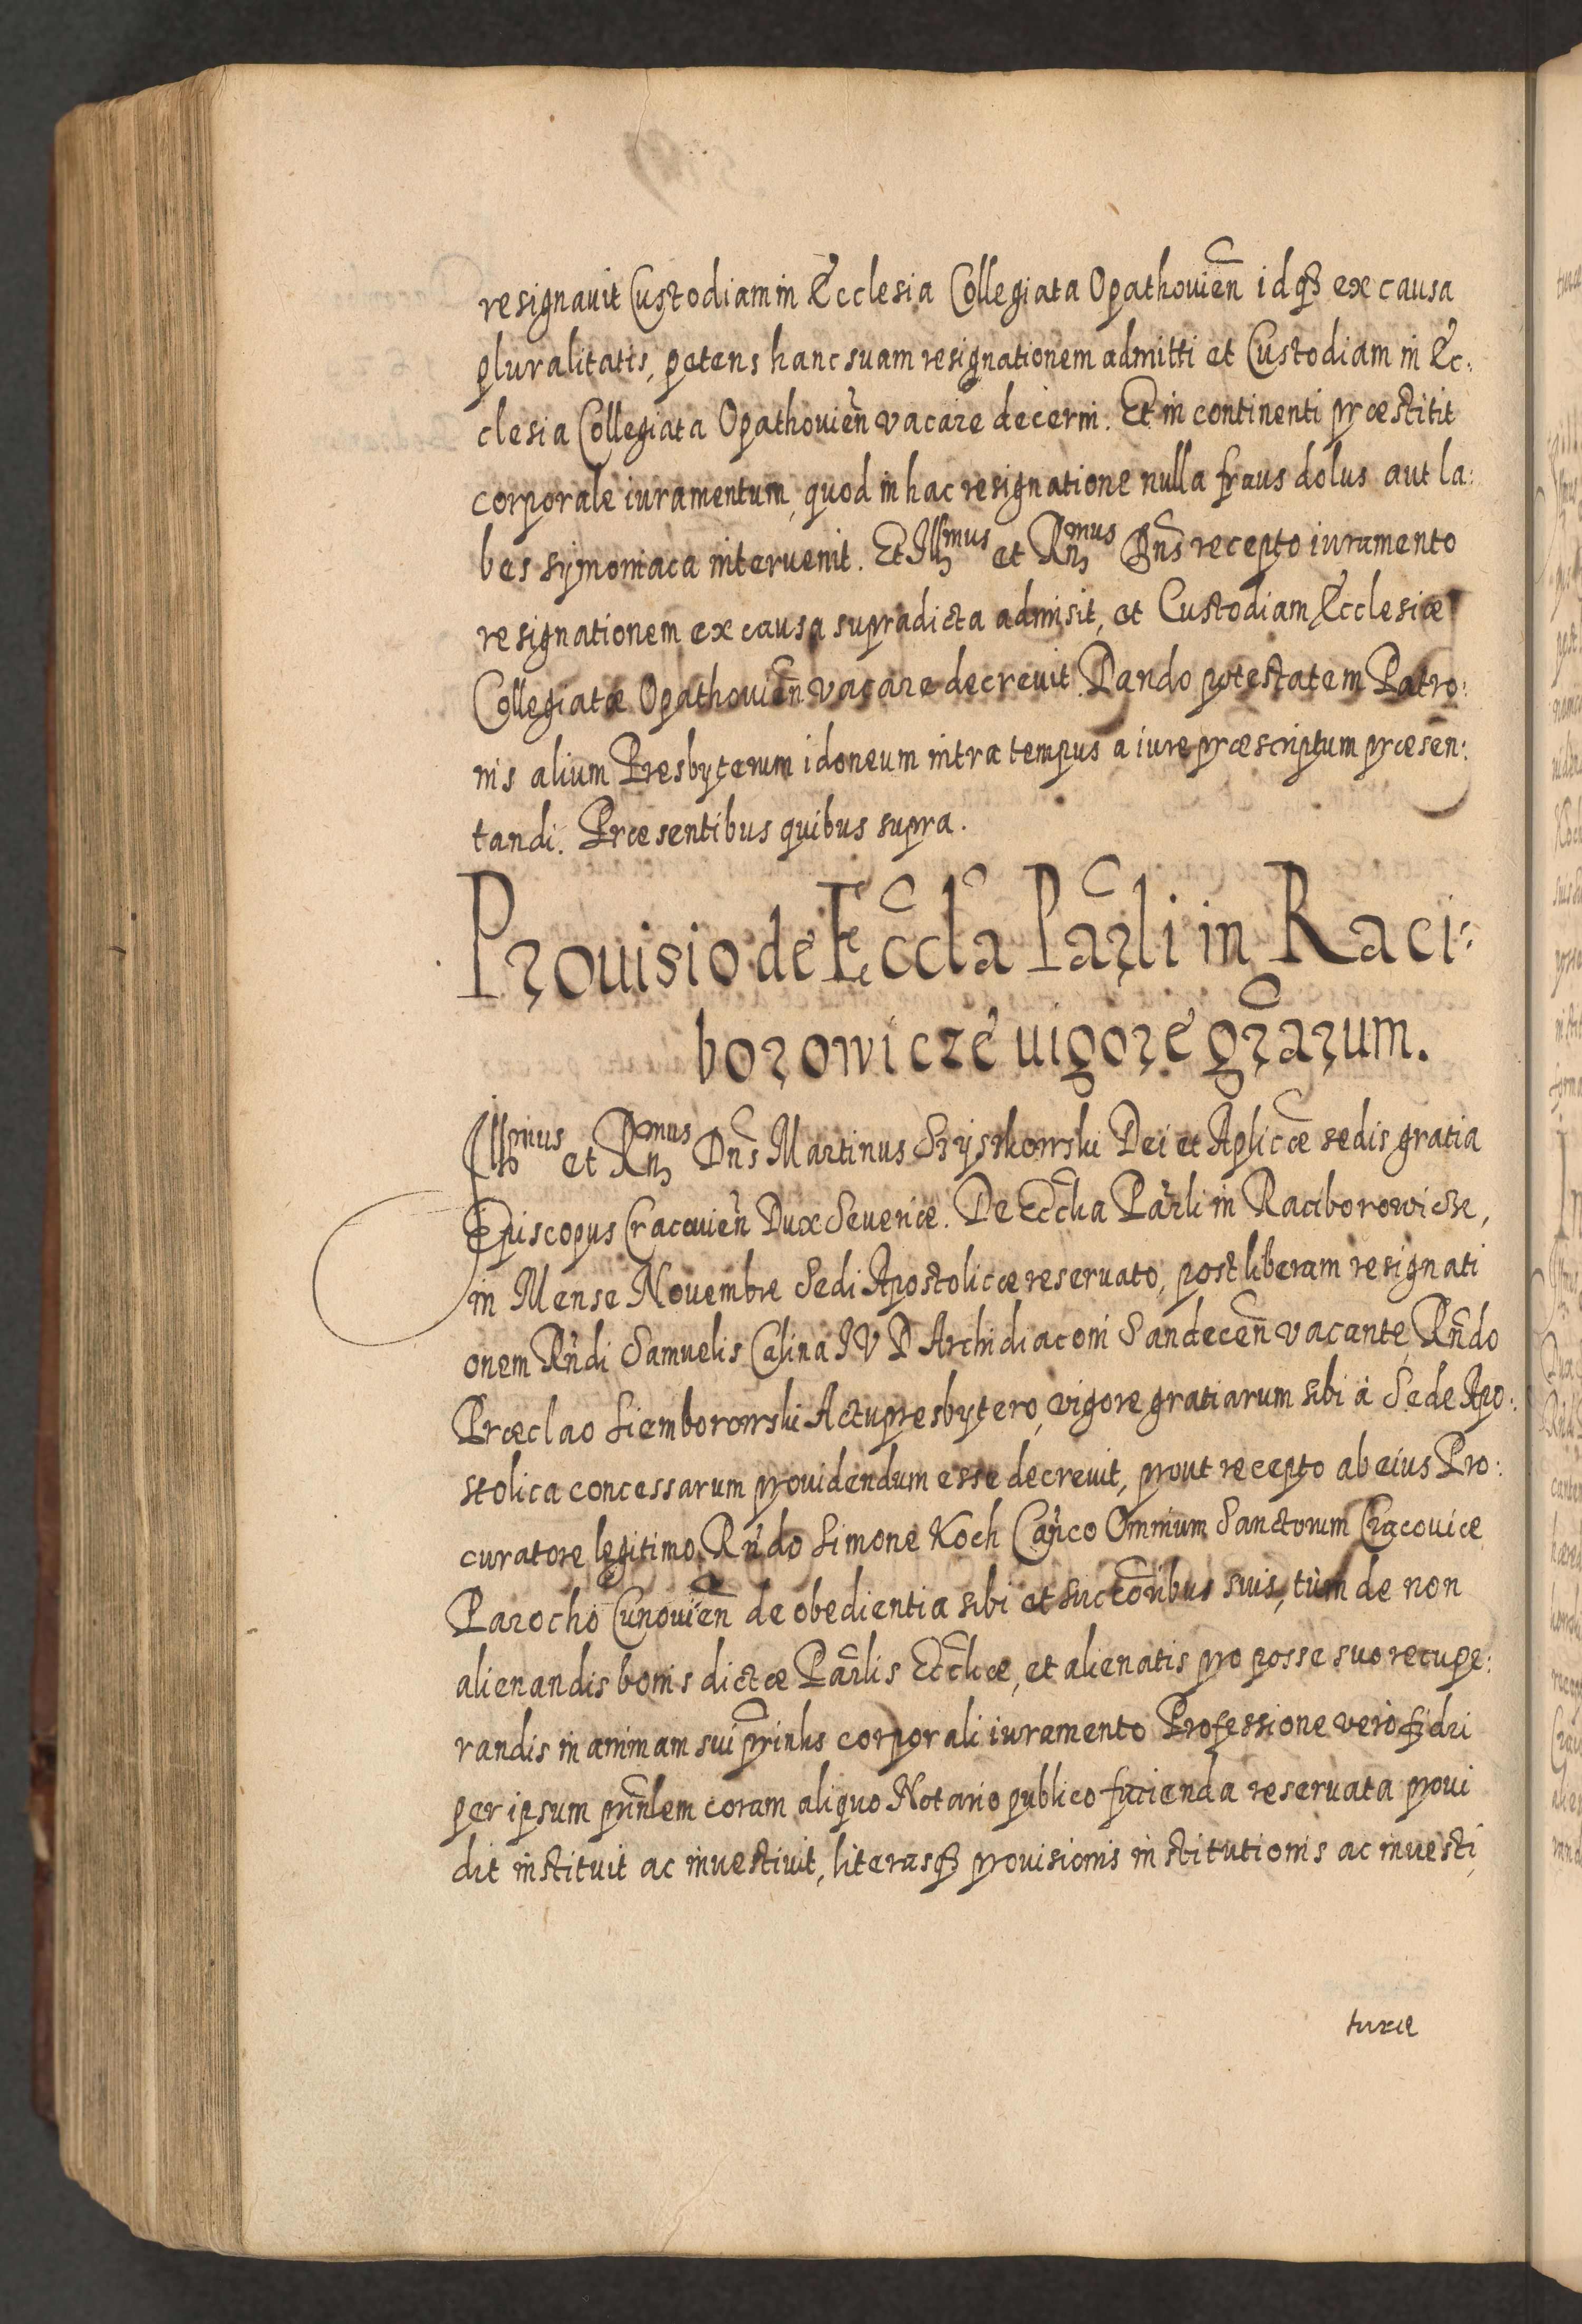 resignauit Custodiam in Ecclesia Collegiata Opathouień idq₃ ex causa
pluralitatis, petens hanc suam resignationem admitti et Custodiam in Ec:
clesia Collegiata Opathouień vacare decerni. Et in continenti præstitit
corporale iuramentum, quod in hac resignatione nulla fraus dolus aut la:
bes symoniaca interuenit. Et Illmus et Rmus Dns recepto iuramento
resignationem ex causa supradicta admisit, et Custodiam Ecclesiæ
Collegiatæ Opathouień vacare decreuit. Dando potestatem Patro:
nis alium Presbyterum idoneum intra tempus a iure præscriptum præsen:
tandi. Præsentibus quibus supra.
Prouisio de Eccla Parli in Raci:
borowicze uigore grarum.
Illmus et Rmus Dns Martinus Szyszkowski Dei et Aplicæ sedis gratia
Episcopus Cracouień Dux Seueriæ. De Ecclia Parli in Raciborowicze,
in Mense Nouembre Sedi Apostolicæ reseruato, post liberam resignati
onem Rndi Samuelis Calina I V D Archidiaconi Sandeceń vacante, Rndo
Præclao Siemborowski Actupresbytero, vigore gratiarum sibi à Sede Apo:
stolica concessarum prouidendum esse decreuit, prout recepto ab eius Pro:
curatore legitimo Rndo Simone Koch Canco Omnium Sanctorum Cracouiæ
Parocho Cunouień de obedientia sibi et succoribus suis, tùm de non
alienandis bonis dictæ Parlis Eccliæ, et alienatis pro posse suo recupe:
randis in animam sui prinlis corporali iuramento Professione verò fidei
per ipsum prinlem coram aliquo Notario publico facienda reseruata proui
dit instituit ac inuestiuit, literasq₃ prouisionis institutionis ac inuesti,
turæ